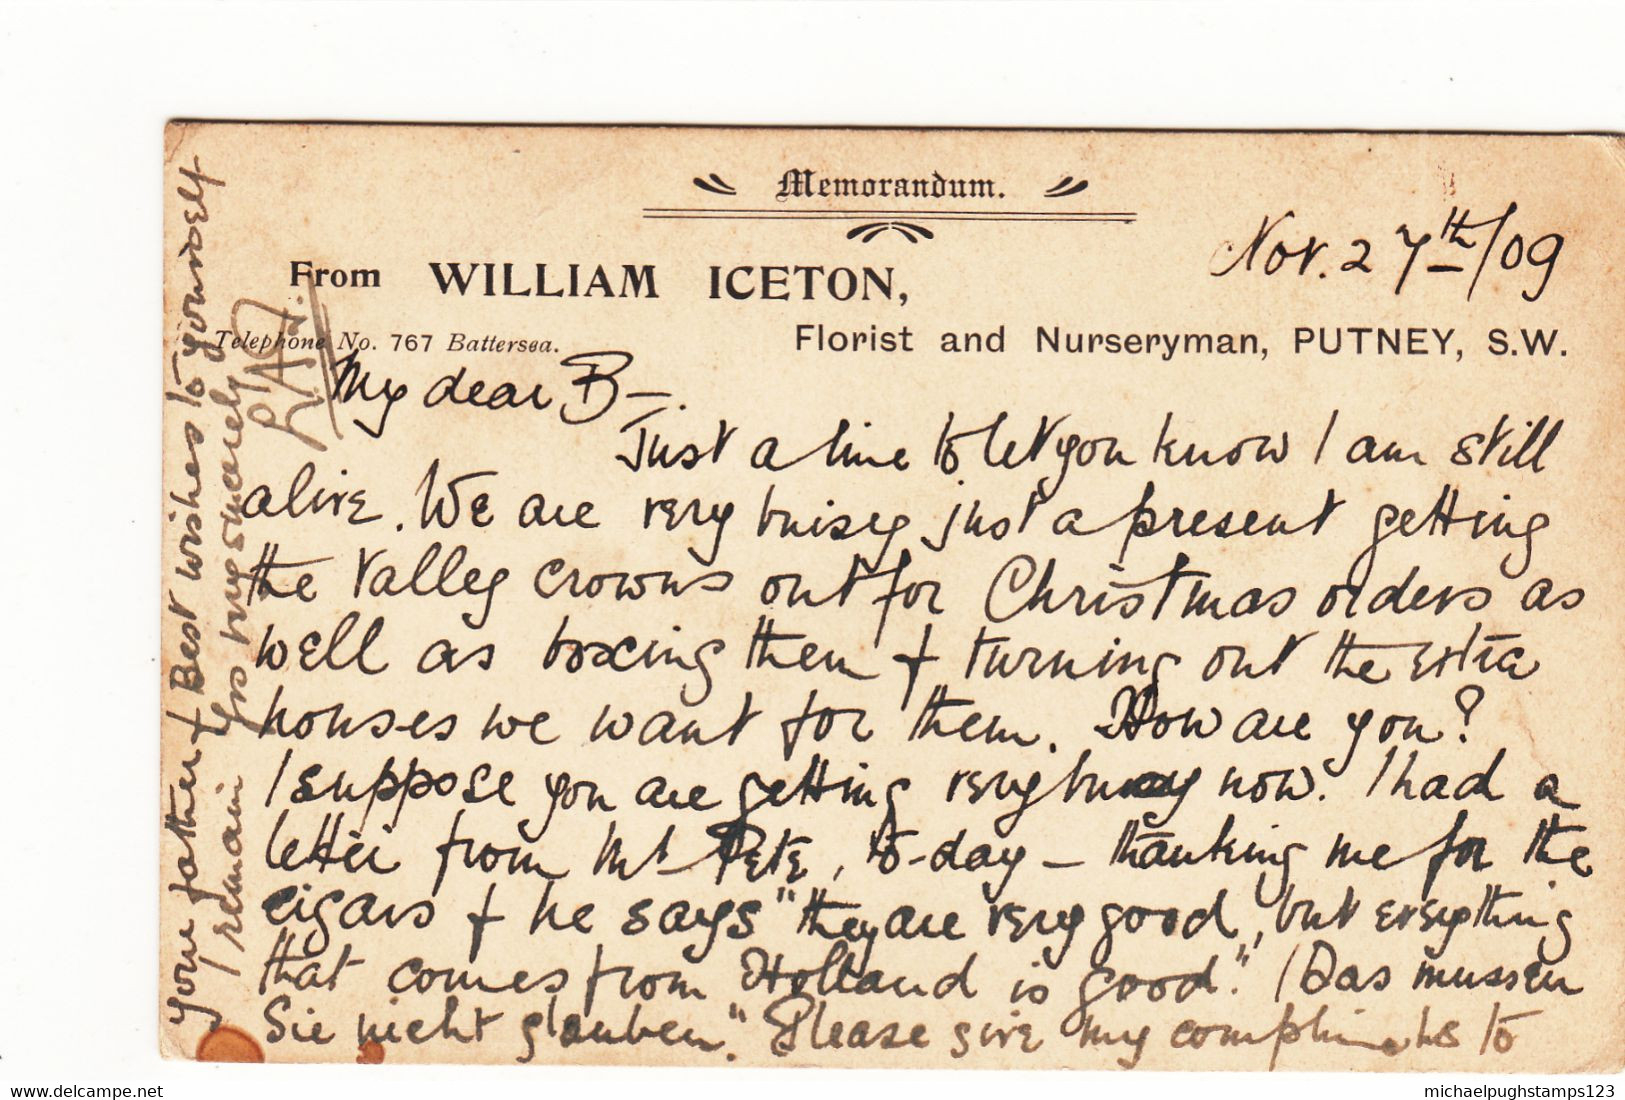 Memorandum.
Nov. 27th/09
From WILLIAM ICETON,
Telephone No. 767 Battersea.
Florist and Nurseryman, PUTNEY, S.W.
My dear B—.
Just a line to let you know I am still
alive. We are very buisey just a present getting
the Valley crowns out for Christmas orders as
well as boxing them + turning out the extra
houses we want for them. How are you?
I suppose you are getting very busy now. I had a
letter from Mr Pete, to-day — thanking me for the
cigars + he says "they are very good, but everything
that comes from Holland is good." (Das mussen
Sie nicht glauben". Please give my compliments to
your father + Best wishes to yourself
I remain Yrs very sincerely
michaelpughstamps123